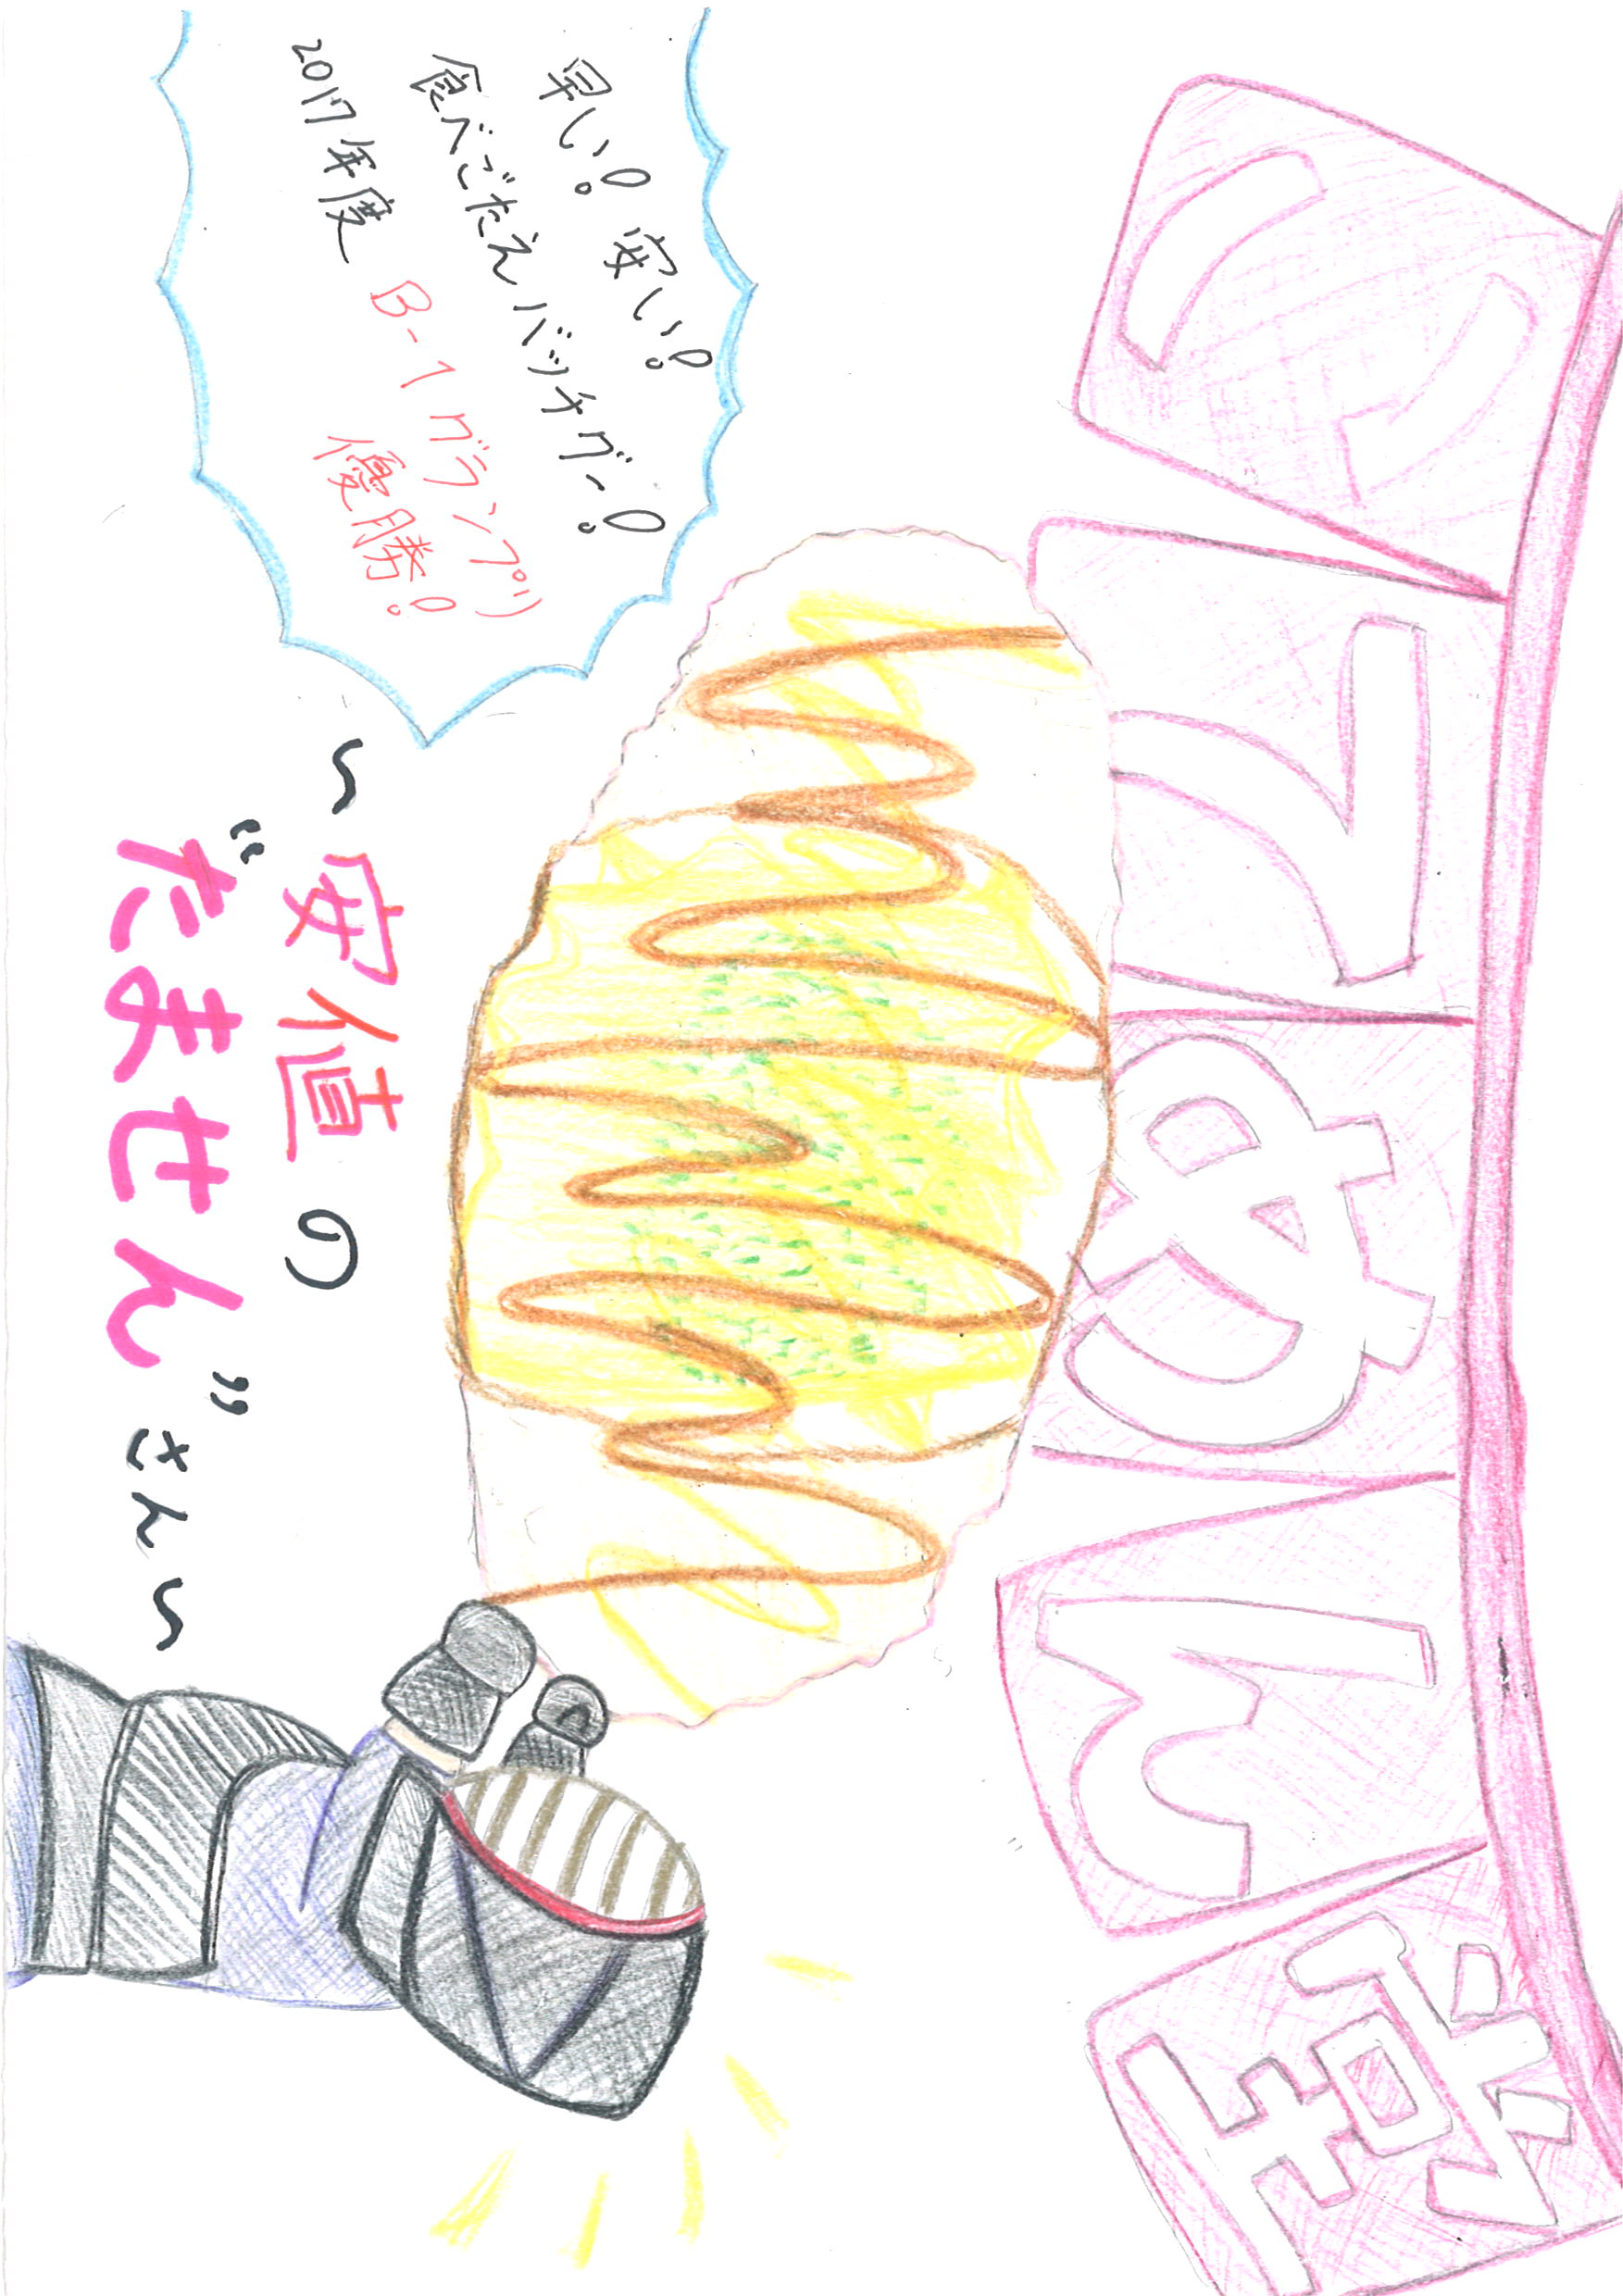 堂
早い！安い！
食べごたえバッチグー！
2017年度 B-1グランプリ
優勝！
～安値の
“たません”さん～